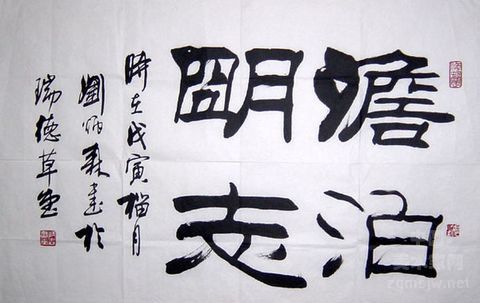 澹泊
朙志
時在戊寅榴月
劉炳森書於
瑞德草堂
zgmsjw.net